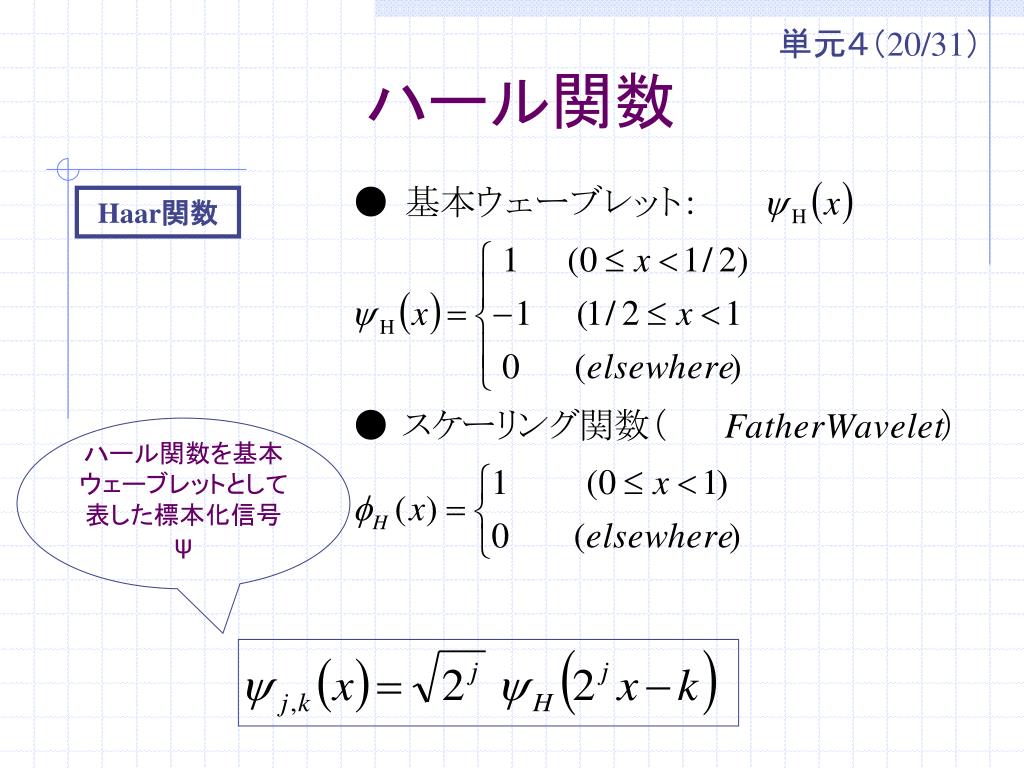 単元４（20/31）
ハール関数
Haar関数
● 基本ウェーブレット： ψ_H(x)
ψ_H(x) = { 1 (0 ≤ x < 1/2)
−1 (1/2 ≤ x < 1
0 (elsewhere)
● スケーリング関数（ FatherWavelet）
φ_H(x) = { 1 (0 ≤ x < 1)
0 (elsewhere)
ハール関数を基本
ウェーブレットとして
表した標本化信号
ψ
ψ_{j,k}(x) = √2^j ψ_H(2^j x − k)